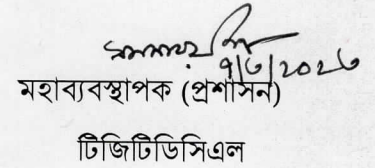 ৭/৩/২০২৩
মহাব্যবস্থাপক (প্রশাসন)
টিজিটিডিসিএল